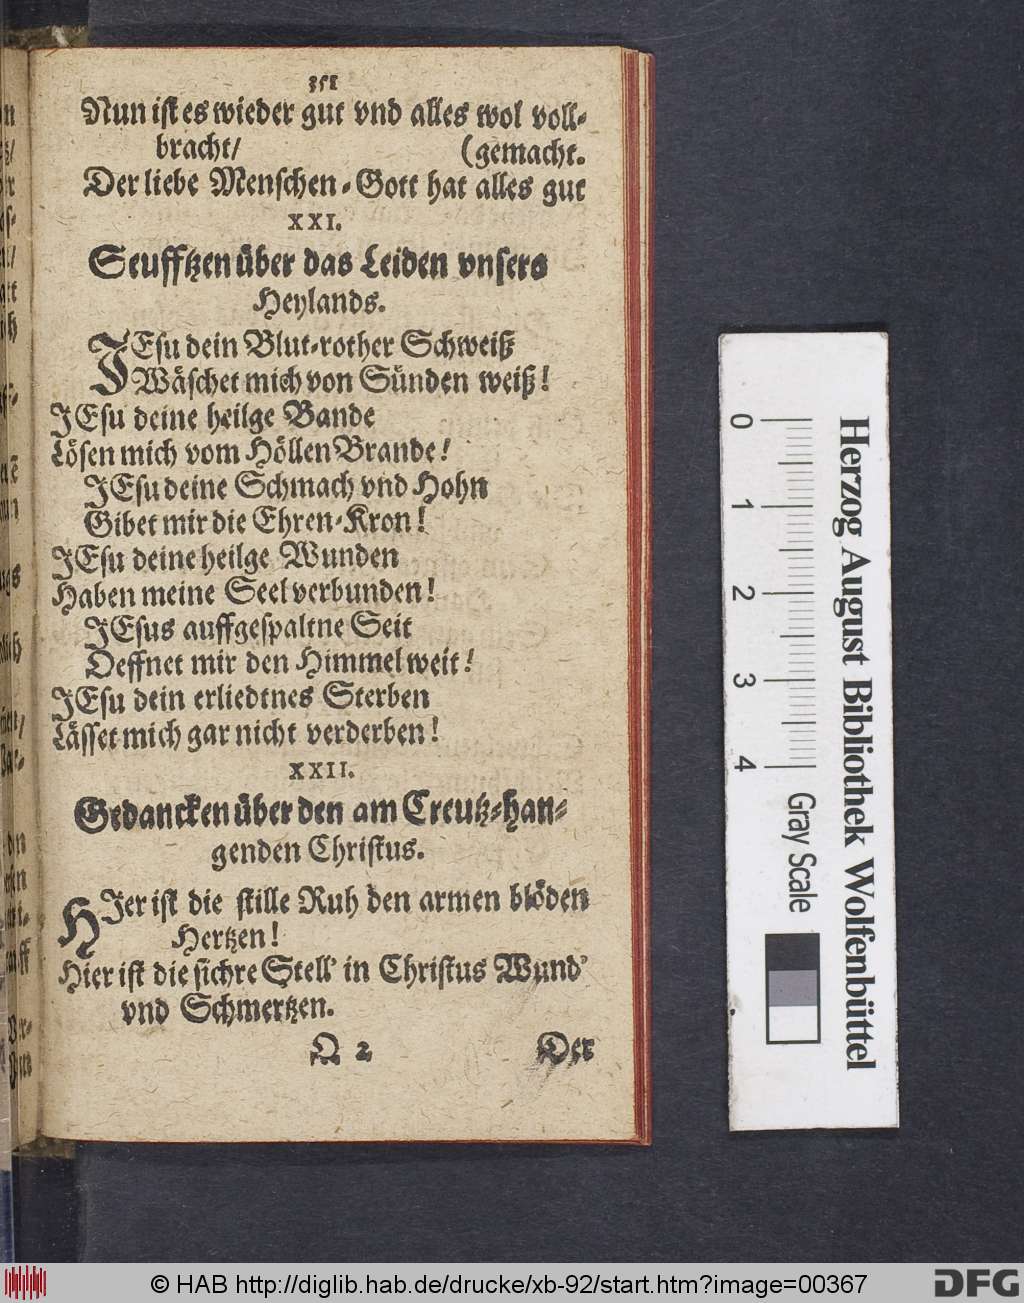 351
Nun ist es wieder gut vnd alles wol voll-
bracht/ (gemacht.
Der liebe Menschen-Gott hat alles gut
XXI.
Seufftzen über das Leiden vnsers
Heylands.
JEsu dein Blut-rother Schweiß
Wäschet mich von Sünden weiß!
JEsu deine heilge Bande
Lösen mich vom Höllen Brande!
JEsu deine Schmach vnd Hohn
Gibet mir die Ehren-Kron!
JEsu deine heilge Wunden
Haben meine Seel verbunden!
JEsus auffgespaltne Seit
Oeffnet mir den Himmel weit!
JEsu dein erliedtnes Sterben
Lässet mich gar nicht verderben!
XXII.
Gedancken über den am Creutz-han-
genden Christus.
HJer ist die stille Ruh den armen blöden
Hertzen!
Hier ist die sichre Stell' in Christus Wund'
vnd Schmertzen.
Q 2 Der
0 1 2 3 4
Gray Scale
Herzog August Bibliothek Wolfenbüttel
© HAB http://diglib.hab.de/drucke/xb-92/start.htm?image=00367
DFG